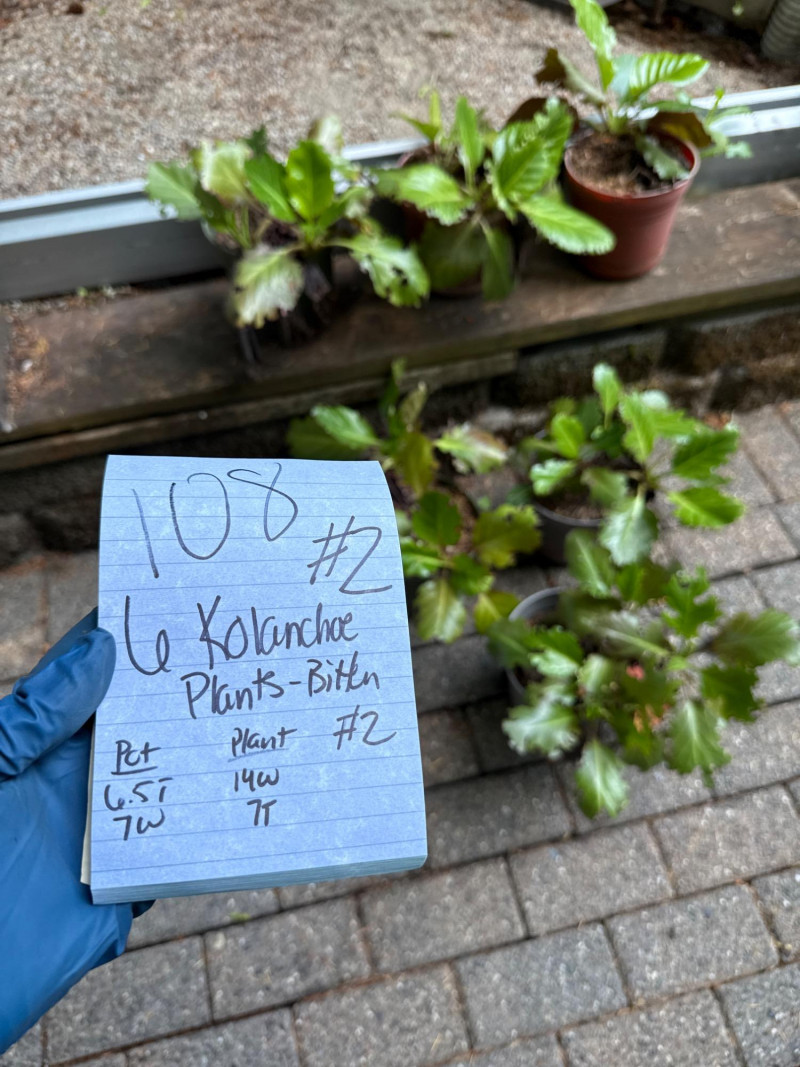 108
#2
6 Kolanchoe
Plants-Bitten
#2
Pot Plant
6.5T 14W
7W 7T